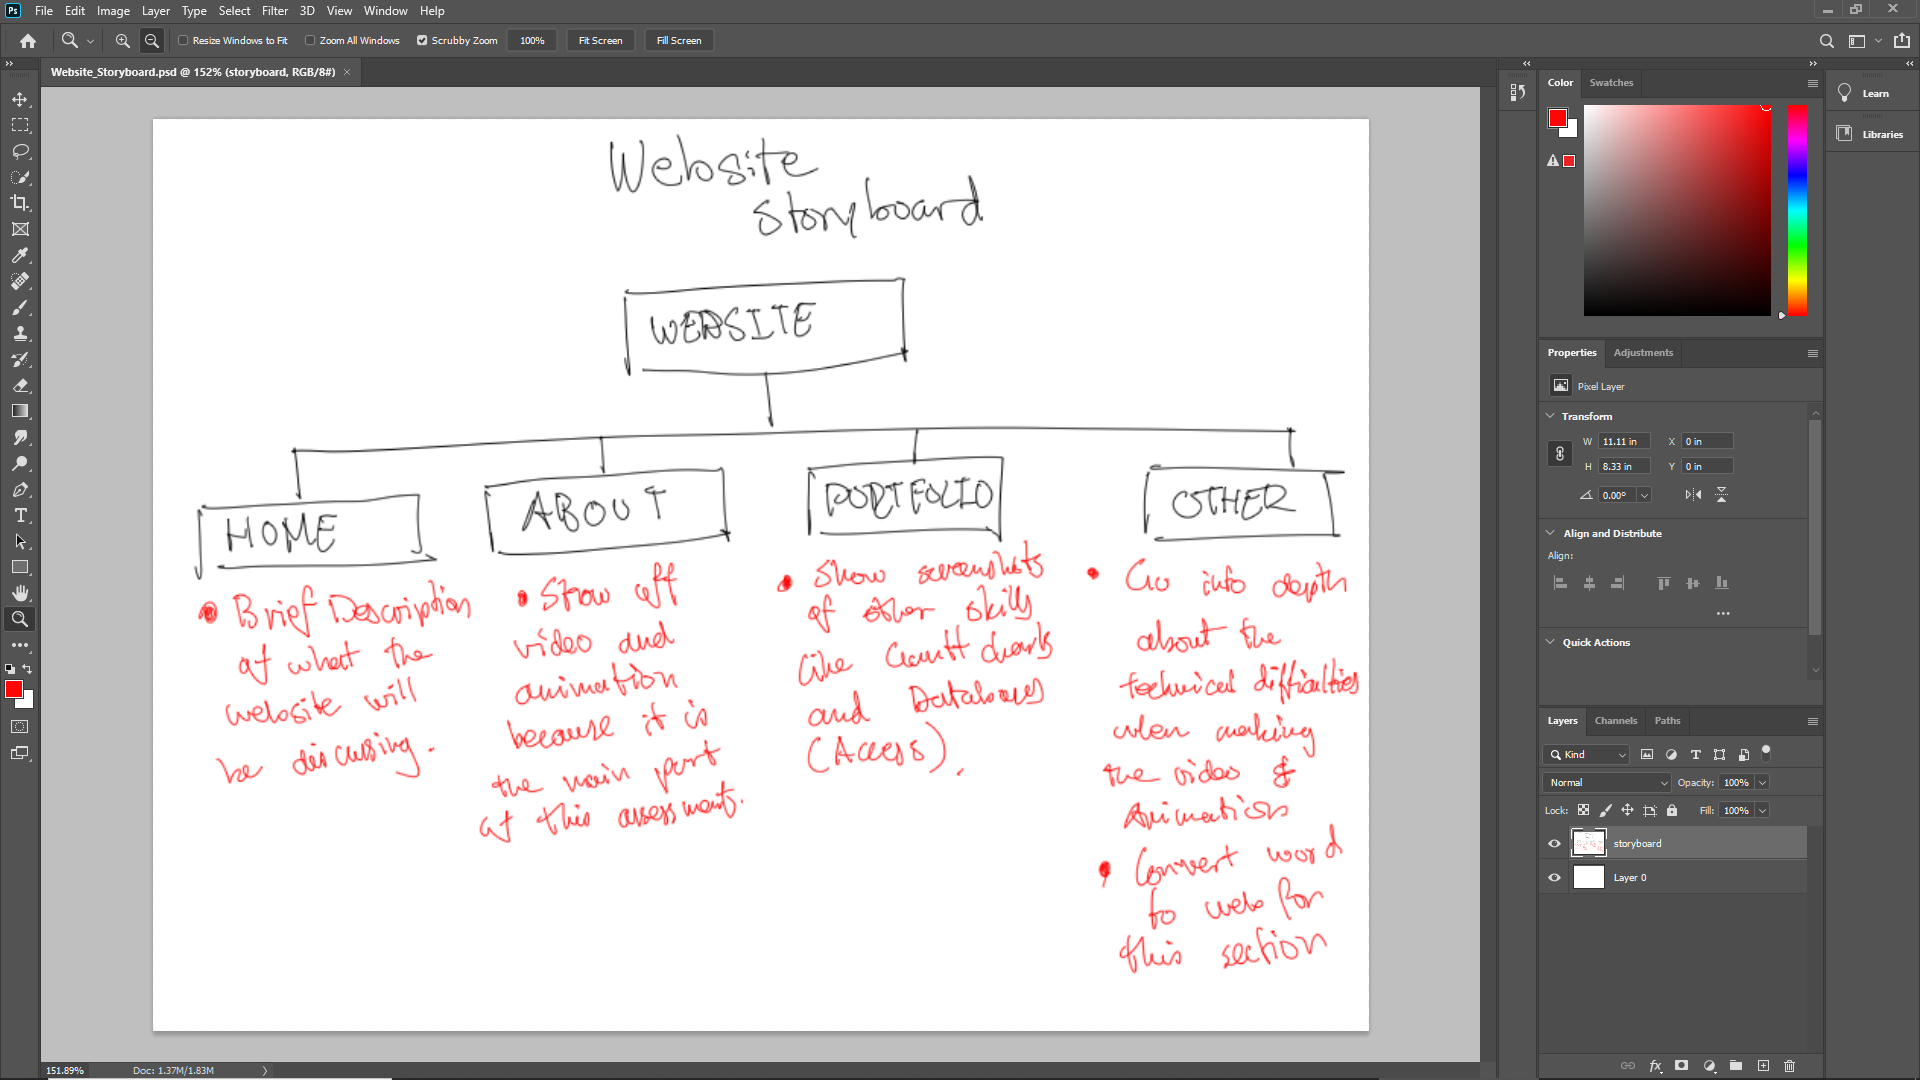 Ps File Edit Image Layer Type Select Filter 3D View Window Help
Resize Windows to Fit Zoom All Windows Scrubby Zoom 100% Fit Screen Fill Screen
Website_Storyboard.psd @ 152% (storyboard, RGB/8#) ×
Website
storyboard
WEBSITE
HOME
ABOUT
PORTFOLIO
OTHER
Brief Description
of what the
website will
be discussing.
Show off
video and
animation
because it is
the main part
of this assessment.
Show screenshots
of other skills
like Gantt charts
and Databases
(Access).
Go into depth
about the
technical difficulties
when making
the video &
Animation
Convert word
to web for
this section
Color Swatches
Learn
Libraries
Properties Adjustments
Pixel Layer
Transform
W 11.11 in X 0 in
H 8.33 in Y 0 in
0.00°
Align and Distribute
Align:
Quick Actions
Layers Channels Paths
Kind
Normal Opacity: 100%
Lock: Fill: 100%
storyboard
Layer 0
fx
151.89% Doc: 1.37M/1.83M